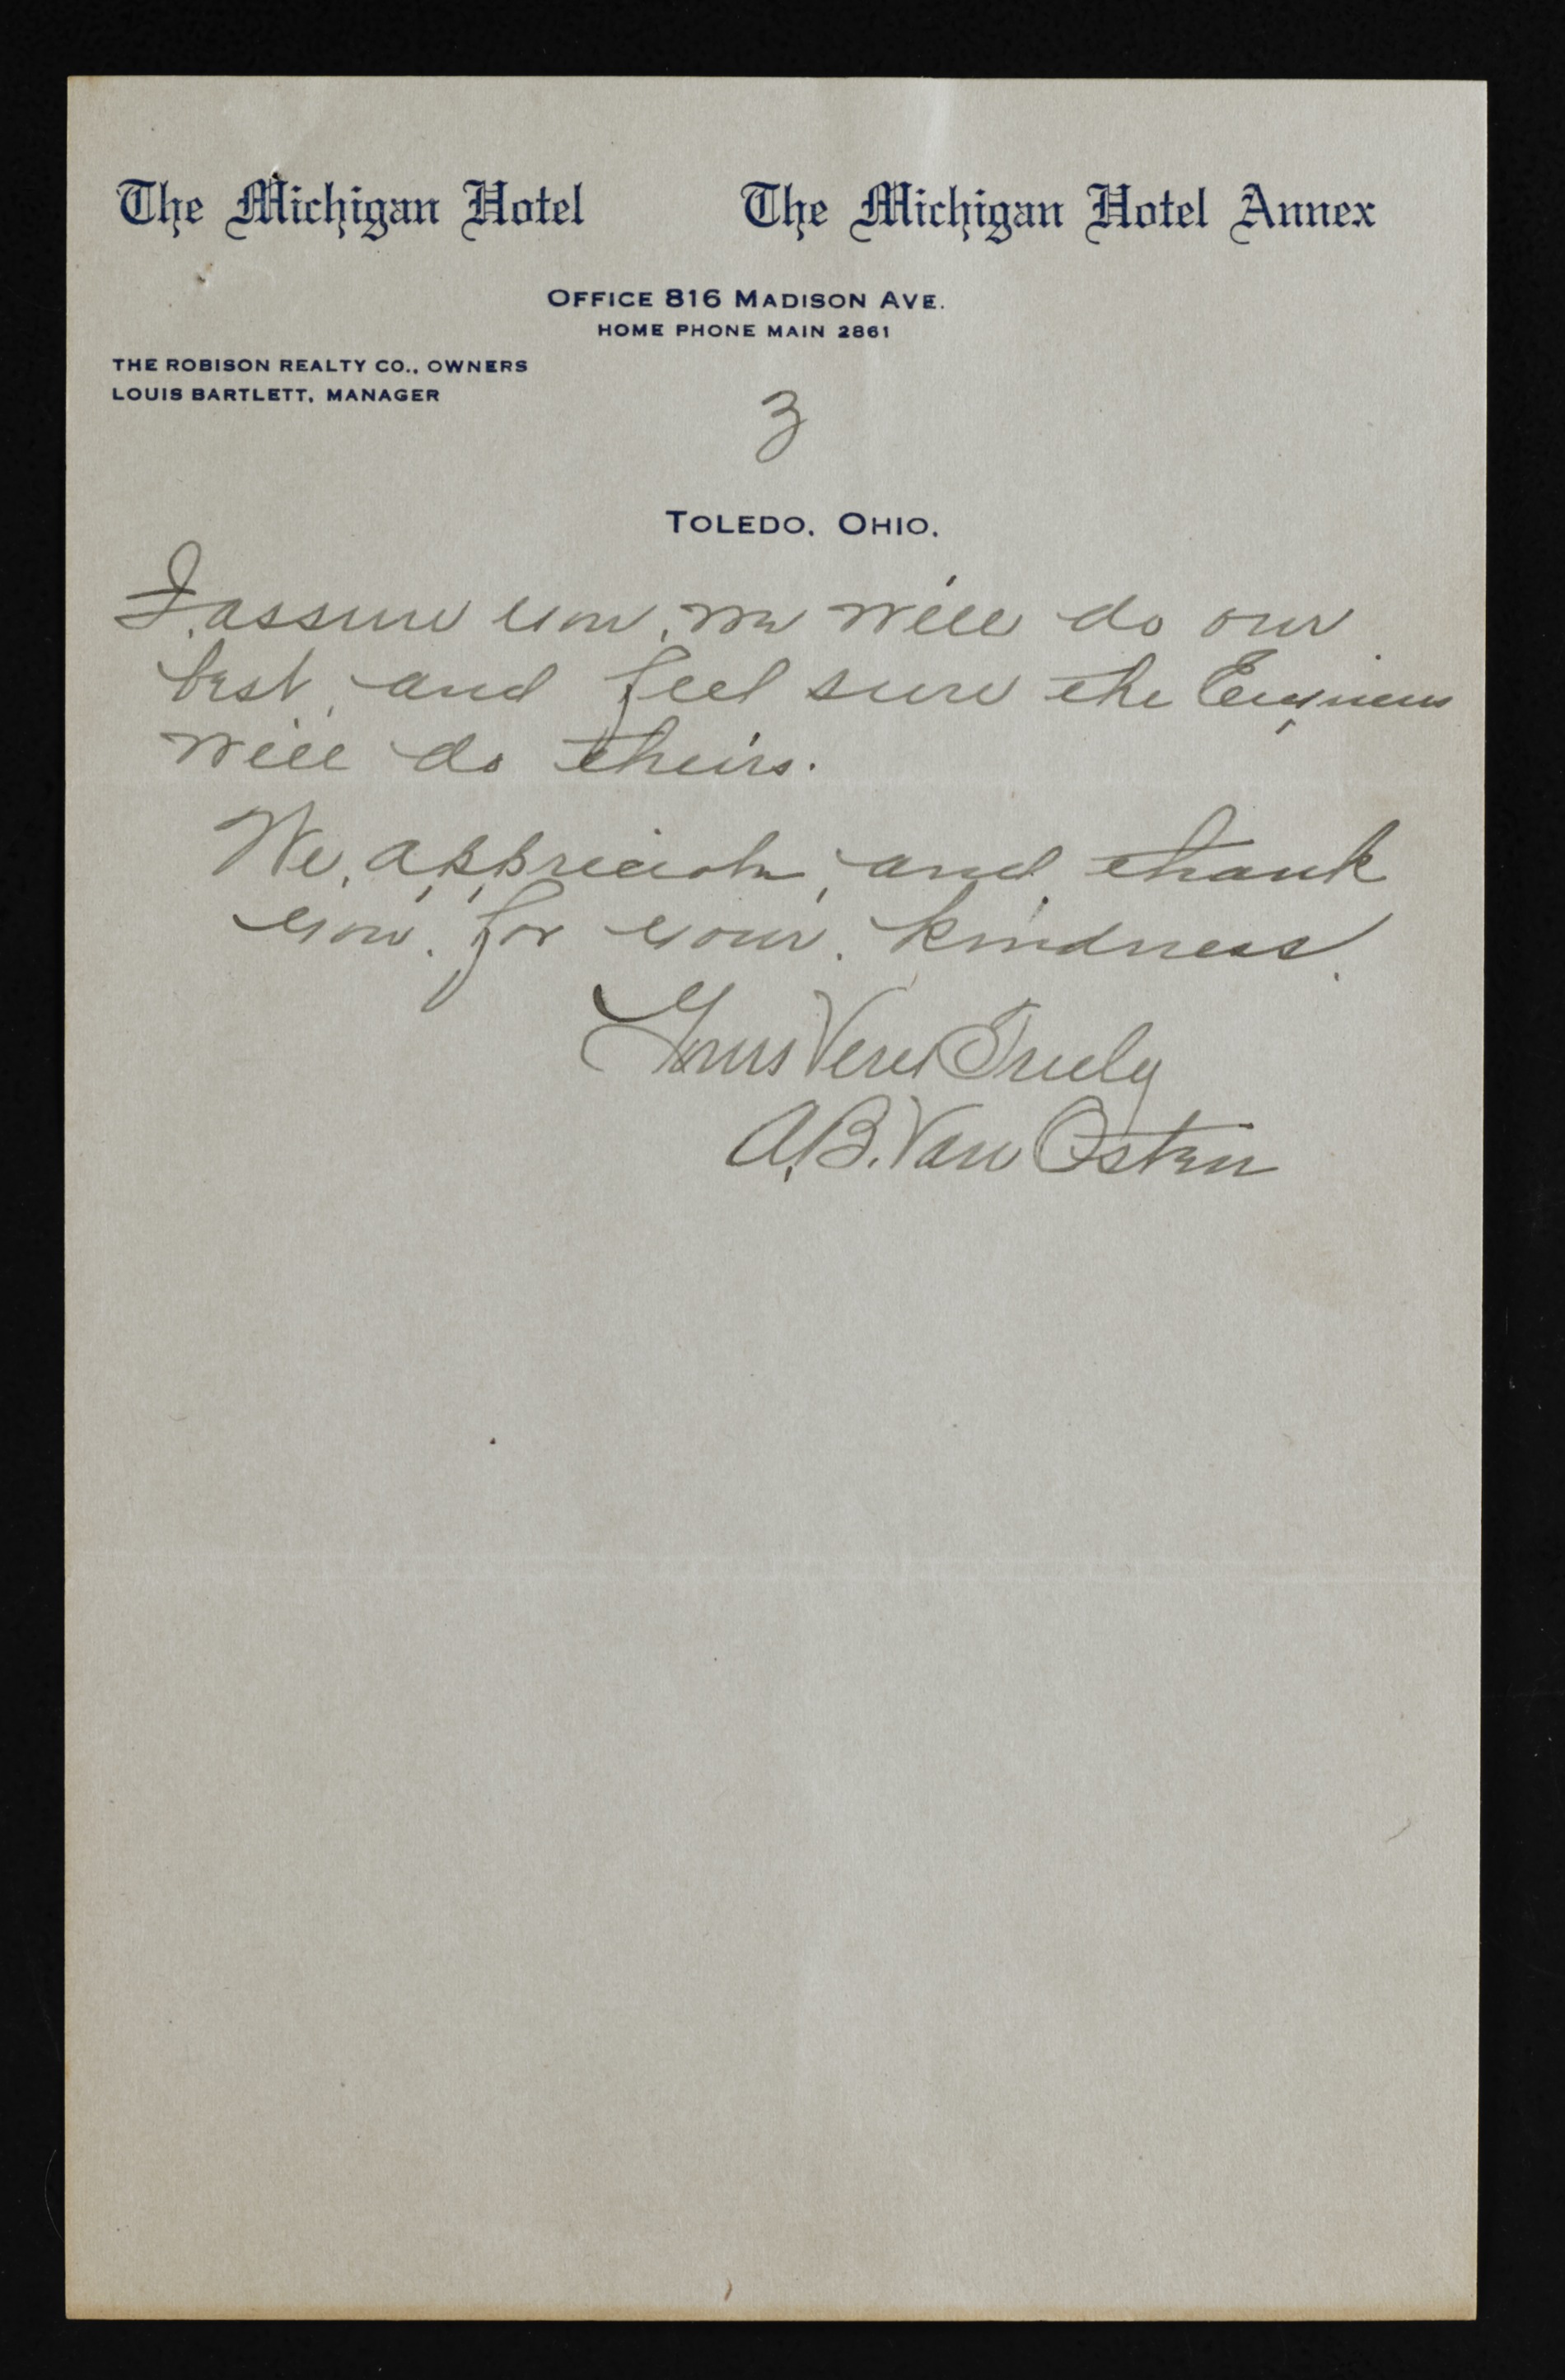 The Michigan Hotel The Michigan Hotel Annex
OFFICE 816 MADISON AVE.
HOME PHONE MAIN 2861
THE ROBISON REALTY CO., OWNERS
LOUIS BARTLETT, MANAGER
3
TOLEDO, OHIO.
I assure you, we will do our
best, and feel sure the Engineers
will do theirs.
We, appreciate, and thank
you. for your. kindness.
Yours Very Truly
A.B. Van Osten